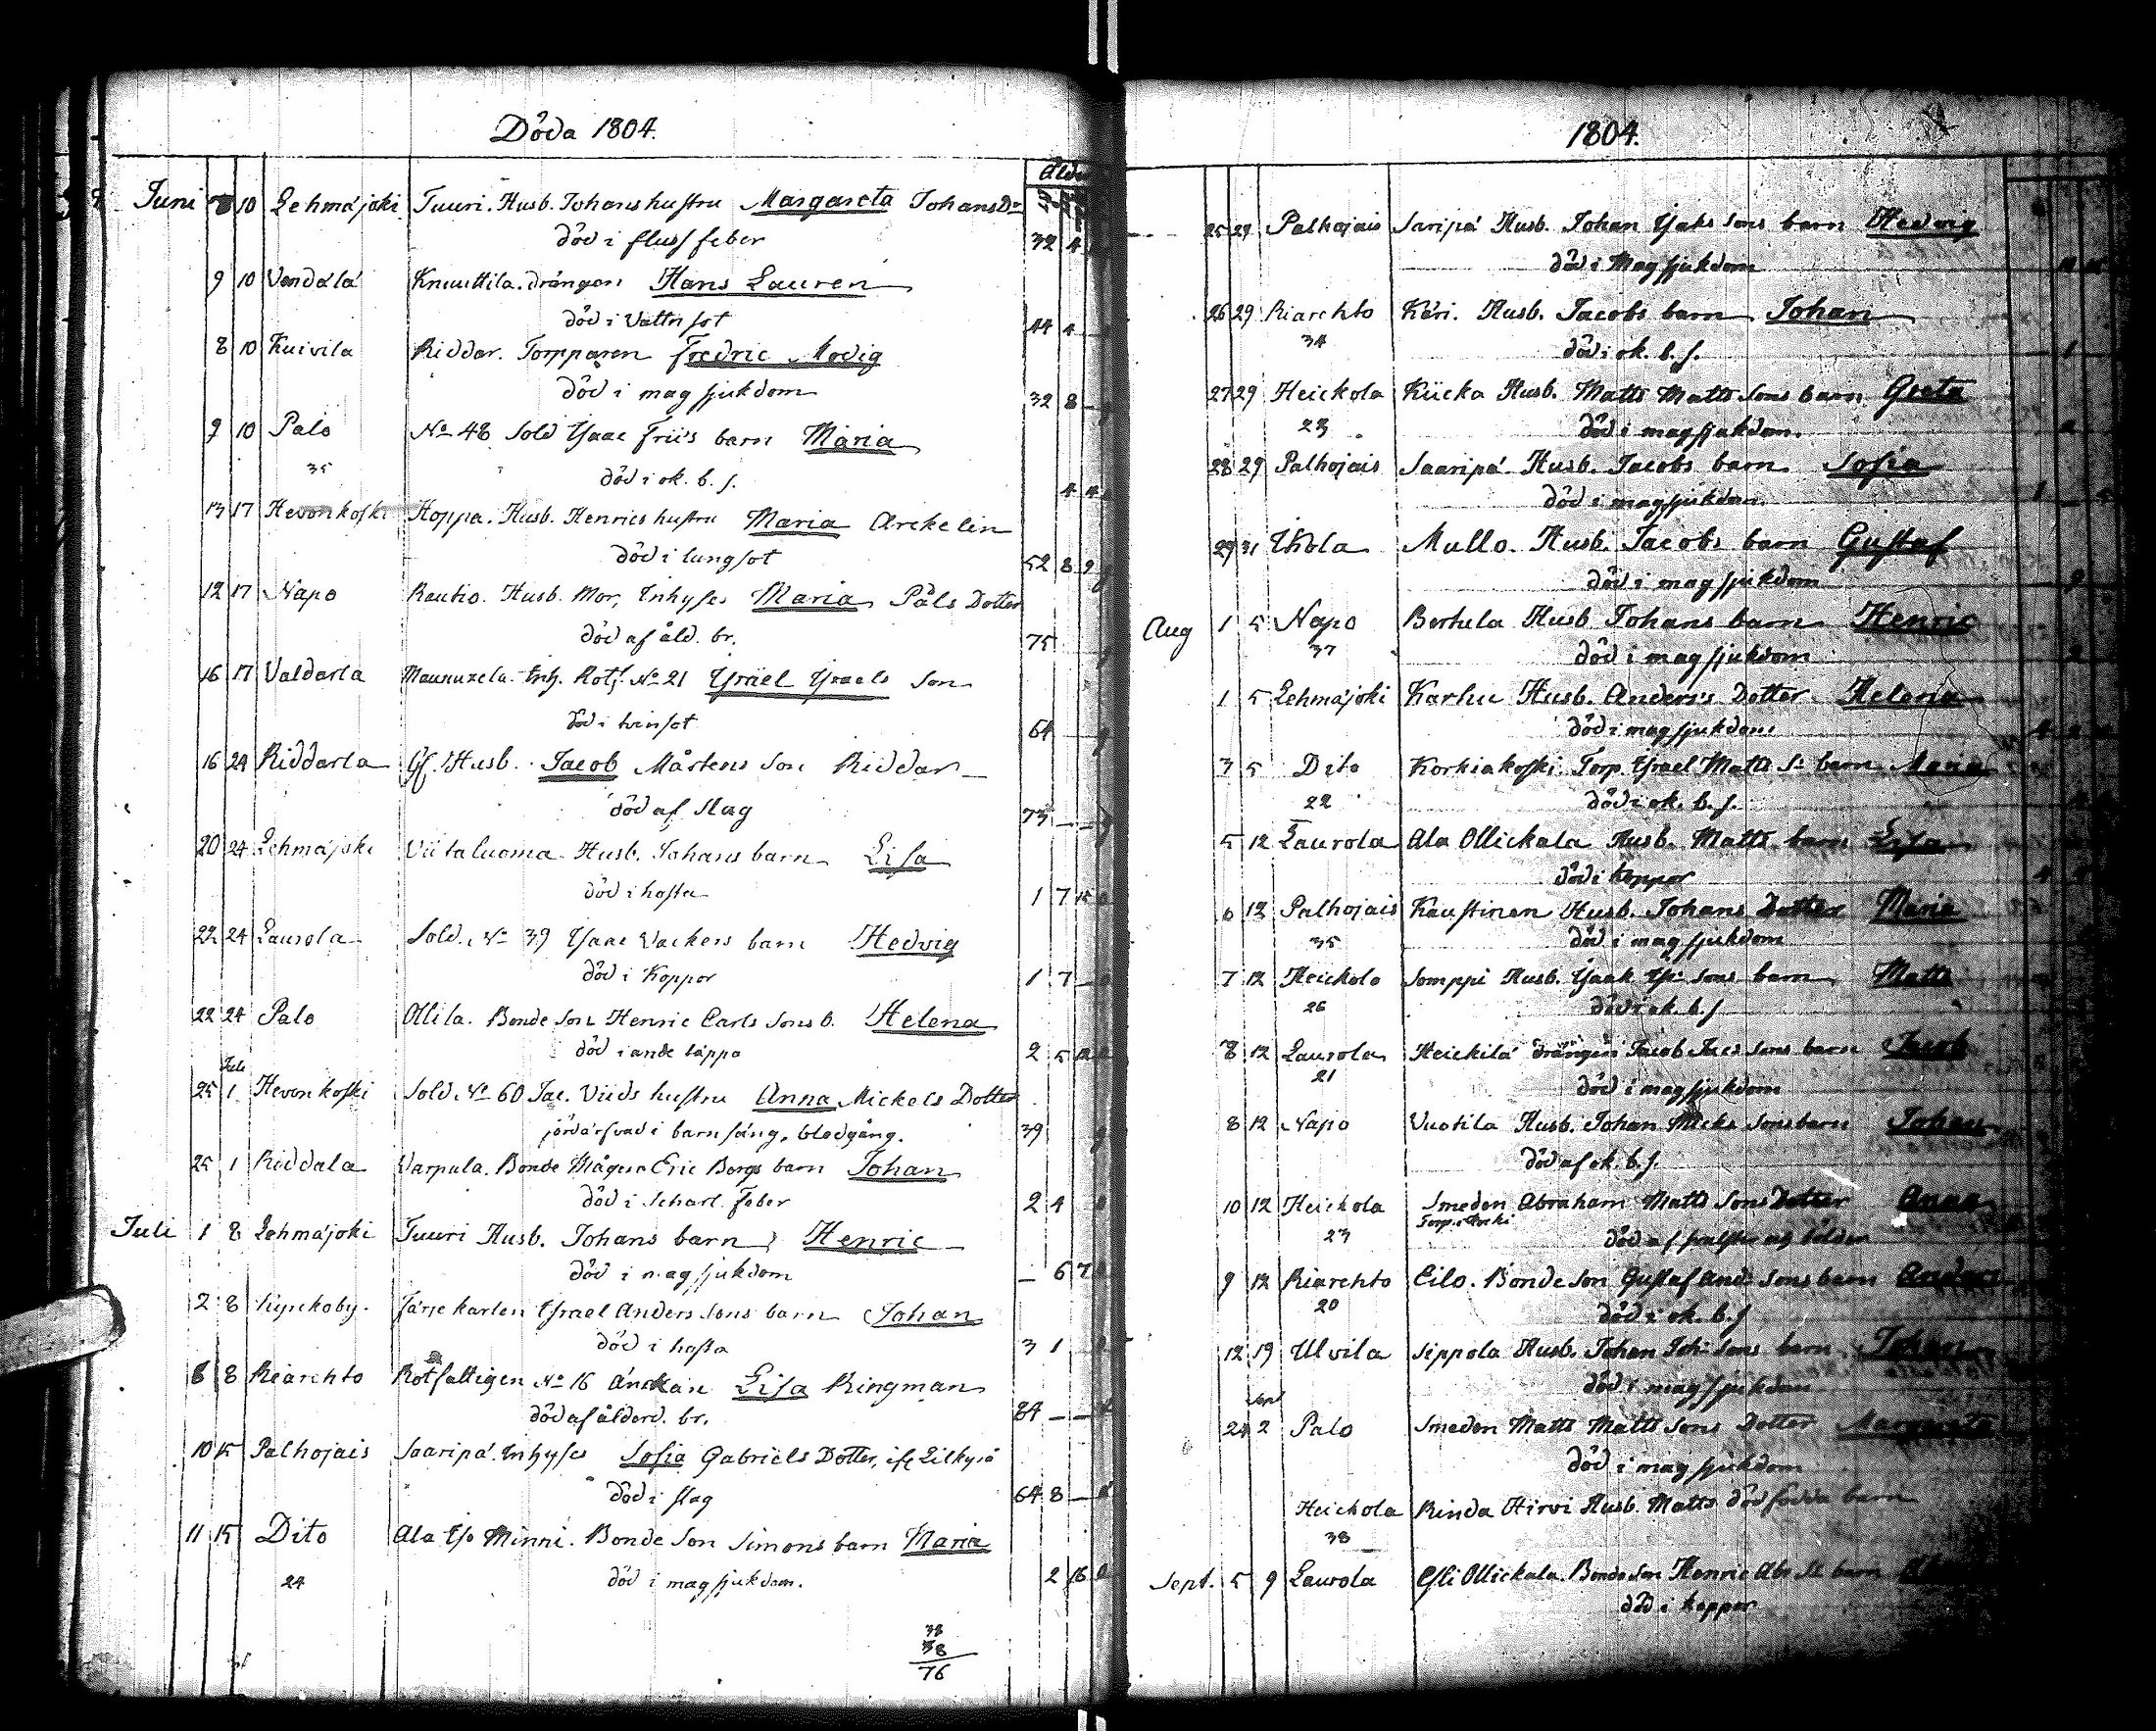 Döda 1804.
Ålder
Juni 10 Lehmäjoki Tuuri. Husb. Johans hustru Margareta Johans Dr
död i fluss feber 32 4
9 10 Vendälä Knuuttila. drängen Hans Lauren
död i Vattn sot 44 4
8 10 Kuivila Riddar. Torpparen Fredric Modig
död i mag sjukdom 32 8
9 10 Palo No 48 Sold Isaac Friis barn Maria
35 död i ok. b. s. 4 4
13 17 Hevonkoski Hoppa. Husb. Henrics hustru Maria Arckelin
död i lungsot 52 8 9
12 17 Napo Rautio. Husb. Mor, Inhyses Maria Påls Dotter
död af åld. br. 75
16 17 Valdarla Maunuxela Inh. Rotf. No 21 Israel Israels Son
död i tvinsot 64
16 24 Riddarla Gf. Husb. Jacob Mårtens Son Riddar
död af slag 73
20 24 Lehmäjoki Viitaluoma Husb. Johans barn Lisa
död i hosta 1 7 15
22 24 Laurola Sold. No 39 Isaac Vackers barn Hedvig
död i Koppor 1 7
22 24 Palo Ollila. Bonde Son Henric Carls Sons b. Helena
död i andetäppa 2 5 12
Juli
25 1 Hevonkoski Sold. No 60 Jac. Viids hustru Anna Mickels Dotter
död i barnsäng, blodgång. 39
25 1 Riddala Varpula. Bonde Mågen Eric Borgs barn Johan
död i Scharl. Feber 2 4
Juli 1 8 Lehmäjoki Tuuri Husb. Johans barn Henric
död i mag sjukdom 6 7
2 8 Kyrckoby. Färjekarlen Israel Anders Sons barn Johan
död i hosta 3 1
8 8 Riarehto Rotfattigen No 16 Änckan Lisa Ringman
död af ålderd. br. 84
10 15 Palhojais Saaripä. Inhyses Sofia Gabriels Dotter, ifr. Lillkyrå
död i slag 64 8
11 15 Dito Ala Iso Minni. Bonde Son Simons barn Maria
24 död i mag sjukdom. 2 16
38
38
76
1804.
25 29 Palhojais Saripä Husb. Johan Isaks Sons barn Hedvig
död i Mag sjukdom
26 29 Riarehto Kéri. Husb. Jacobs barn Johan
34 död i ok. b. s. 1
27 29 Heickola Kiicka Husb. Matts Matts Sons barn Greta
23 död i mag sjukdom.
28 29 Palhojais Saaripä Husb. Jacobs barn Sofia
död i mag sjukdom 1
29 31 Ikola Mullo. Husb. Jacobs barn Gustaf
död i mag sjukdom 9
Aug 1 5 Napo Bertula Husb Johans barn Henric
37 död i mag sjukdom
1 5 Lehmäjoki Karhu Husb. Anders's Dotter Helena
död i mag sjukdom
3 5 Dito Korkiakoski Torp. Israel Matts Ss barn Maria
22 död i ok. b. s.
5 12 Laurola Ala Ollickala Husb. Matts barn Lisa
död i koppor
6 12 Palhojais Kaustinen Husb. Johans Dotter Maria
35 död i mag sjukdom
7 12 Heickola Somppi Husb. Isaak Is: Sons barn Matts
26 död i ok. b. s
8 12 Laurola Heickilä drängen Jacob Jacs Sons barn Jacob
21 död i mag sjukdom
8 12 Napo Vuotila Husb. Johan Micks Sons barn Johan
död af ok. b. s.
10 12 Heickola Smeden Abraham Matts Sons Dotter Anna
23 död af
9 12 Riarehto Eilo. Bonde Son Gustaf And: Sons barn Anders
20 död i ok. b. s
12 19 Ulvila Sippola Husb. Johan Joh: Sons barn Johan
död i mag sjukdom
Sept
24 2 Palo Smeden Matts Matts Sons Dotter Margareta
död i mag sjukdom
Heickola Rinda Hirvi Husb. Matts dödfödda barn
38
Sept. 5 9 Laurola Ollickala Bonde Son Henric Abr Ss barn
död i koppor